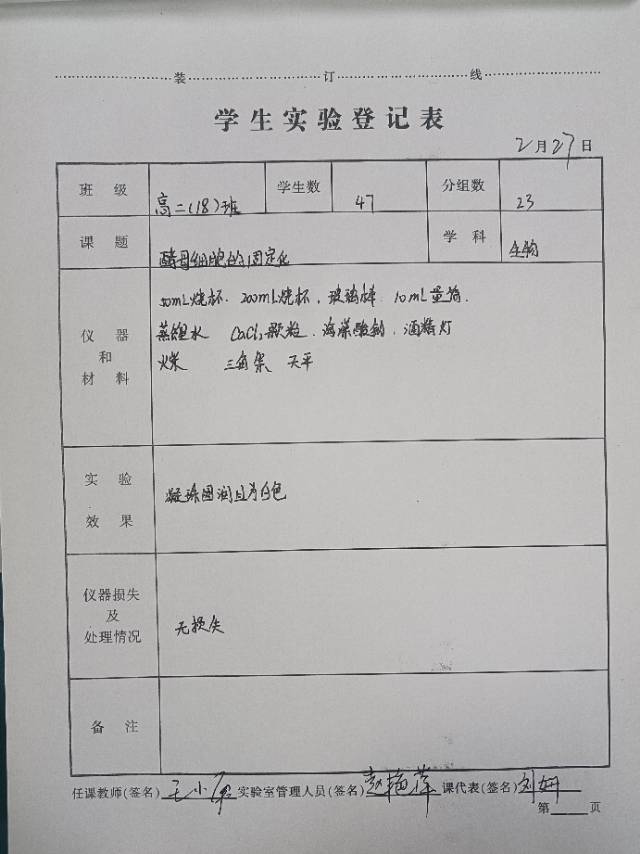 装 订 线
学生实验登记表
2月27日
班级 高二(18)班 学生数 47 分组数 23
课题 酵母细胞的固定化 学科 生物
仪器和材料
50mL烧杯、200mL烧杯、玻璃棒、10mL量筒、
蒸馏水 CaCl₂颗粒、海藻酸钠、酒精灯
火柴 三角架、天平
实验效果
凝珠圆润且为白色
仪器损失及处理情况
无损失
备注
任课教师(签名) 王小 实验室管理人员(签名) 赵艳萍 课代表(签名) 刘妍
第 页